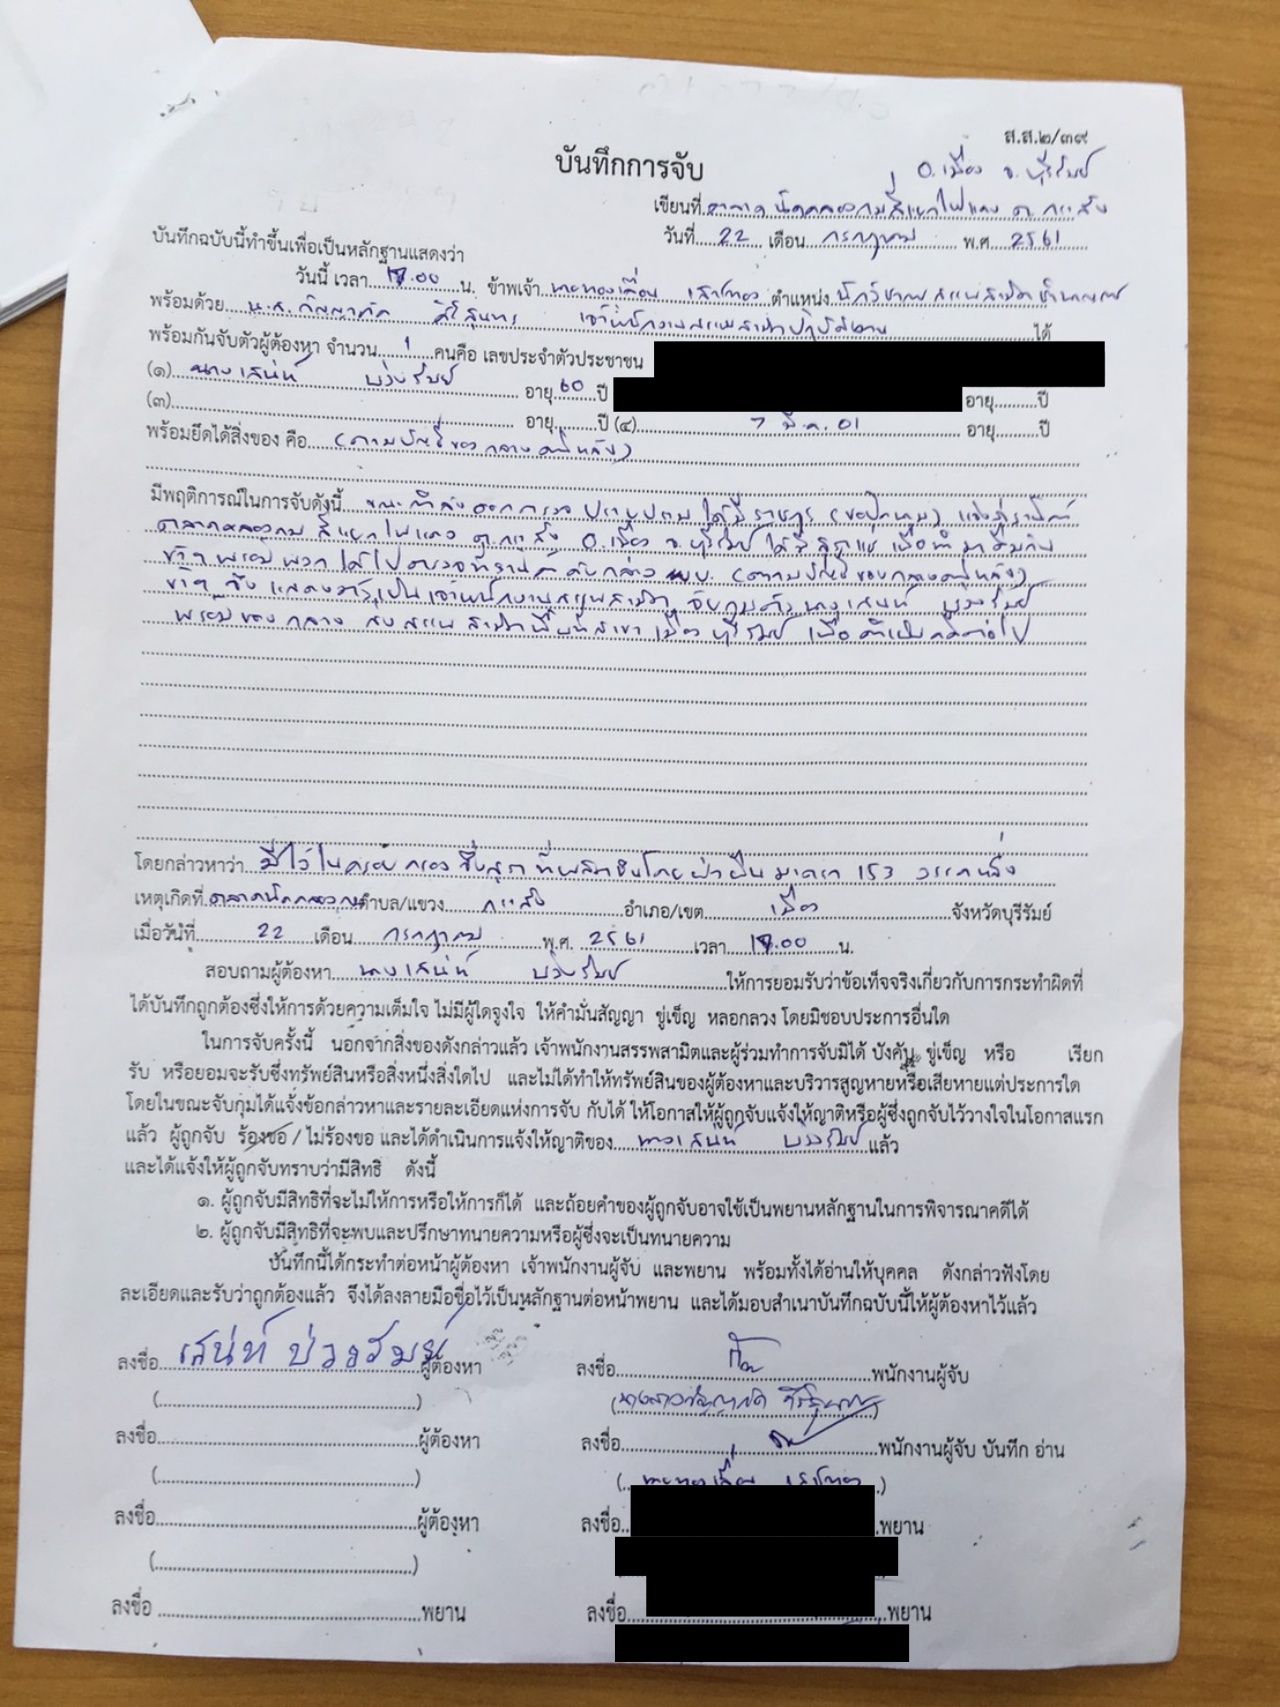 ส.ส.๒/๓๙
บันทึกการจับ
อ.เมือง จ.บุรีรัมย์
เขียนที่ ตลาดนัดคลองถมสี่แยกไฟแดง ต.กระสัง
วันที่ 22 เดือน กรกฎาคม พ.ศ. 2561
บันทึกฉบับนี้ทำขึ้นเพื่อเป็นหลักฐานแสดงว่า
วันนี้ เวลา .00 น. ข้าพเจ้า ตำแหน่ง นักวิชาการสรรพสามิตชำนาญการ
พร้อมด้วย น.ส. เจ้าพนักงานสรรพสามิตปฏิบัติงาน ได้
พร้อมกันจับตัวผู้ต้องหา จำนวน 1 คนคือ เลขประจำตัวประชาชน
(๑) นางเสน่ห์ บ่วงรัมย์ อายุ 60 ปี อายุ ปี
(๓) อายุ ปี (๔) 7 มี.ค. 01 อายุ ปี
พร้อมยึดได้สิ่งของ คือ (ตามบัญชีของกลางคดีหลัง)
มีพฤติการณ์ในการจับดังนี้ ขณะกำลังออกตรวจปราบปราม ได้มีราษฎร (ขอปิดนาม) แจ้งว่า
ตลาดคลองถม สี่แยกไฟแดง ต.กระสัง อ.เมือง จ.บุรีรัมย์ ได้มีสุราแช่
ข้าฯ พร้อมพวกได้ไปตรวจที่ร้านค้าดังกล่าว พบ (ตามบัญชีของกลางคดีหลัง)
ข้าฯ จึงแสดงตัวเป็นเจ้าพนักงานสรรพสามิต จับกุมตัวนางเสน่ห์ บ่วงรัมย์
พร้อมของกลาง ส่งสรรพสามิตพื้นที่สาขาเมืองบุรีรัมย์ เพื่อดำเนินคดีต่อไป
โดยกล่าวหาว่า มีไว้ในครอบครองซึ่งสุราที่ผลิตขึ้นโดยฝ่าฝืนมาตรา 153 วรรคหนึ่ง
เหตุเกิดที่ ตลาดนัดคลองถม ตำบล/แขวง กระสัง อำเภอ/เขต เมือง จังหวัดบุรีรัมย์
เมื่อวันที่ 22 เดือน กรกฎาคม พ.ศ. 2561 เวลา .00 น.
สอบถามผู้ต้องหา นางเสน่ห์ บ่วงรัมย์ ให้การยอมรับว่าข้อเท็จจริงเกี่ยวกับการกระทำผิดที่
ได้บันทึกถูกต้องซึ่งให้การด้วยความเต็มใจ ไม่มีผู้ใดจูงใจ ให้คำมั่นสัญญา ขู่เข็ญ หลอกลวง โดยมิชอบประการอื่นใด
ในการจับครั้งนี้ นอกจากสิ่งของดังกล่าวแล้ว เจ้าพนักงานสรรพสามิตและผู้ร่วมทำการจับมิได้ บังคับ ขู่เข็ญ หรือ เรียก
รับ หรือยอมจะรับซึ่งทรัพย์สินหรือสิ่งหนึ่งสิ่งใดไป และไม่ได้ทำให้ทรัพย์สินของผู้ต้องหาและบริวารสูญหายหรือเสียหายแต่ประการใด
โดยในขณะจับกุมได้แจ้งข้อกล่าวหาและรายละเอียดแห่งการจับ กับได้ ให้โอกาสให้ผู้ถูกจับแจ้งให้ญาติหรือผู้ซึ่งถูกจับไว้วางใจในโอกาสแรก
แล้ว ผู้ถูกจับ ร้องขอ / ไม่ร้องขอ และได้ดำเนินการแจ้งให้ญาติของ นางเสน่ห์ บ่วงรัมย์ แล้ว
และได้แจ้งให้ผู้ถูกจับทราบว่ามีสิทธิ ดังนี้
๑. ผู้ถูกจับมีสิทธิที่จะไม่ให้การหรือให้การก็ได้ และถ้อยคำของผู้ถูกจับอาจใช้เป็นพยานหลักฐานในการพิจารณาคดีได้
๒. ผู้ถูกจับมีสิทธิที่จะพบและปรึกษาทนายความหรือผู้ซึ่งจะเป็นทนายความ
บันทึกนี้ได้กระทำต่อหน้าผู้ต้องหา เจ้าพนักงานผู้จับ และพยาน พร้อมทั้งได้อ่านให้บุคคล ดังกล่าวฟังโดย
ละเอียดและรับว่าถูกต้องแล้ว จึงได้ลงลายมือชื่อไว้เป็นหลักฐานต่อหน้าพยาน และได้มอบสำเนาบันทึกฉบับนี้ให้ผู้ต้องหาไว้แล้ว
ลงชื่อ เสน่ห์ บ่วงรัมย์ ผู้ต้องหา ลงชื่อ พนักงานผู้จับ
ลงชื่อ ผู้ต้องหา ลงชื่อ พนักงานผู้จับ บันทึก อ่าน
ลงชื่อ ผู้ต้องหา ลงชื่อ พยาน
ลงชื่อ พยาน ลงชื่อ พยาน